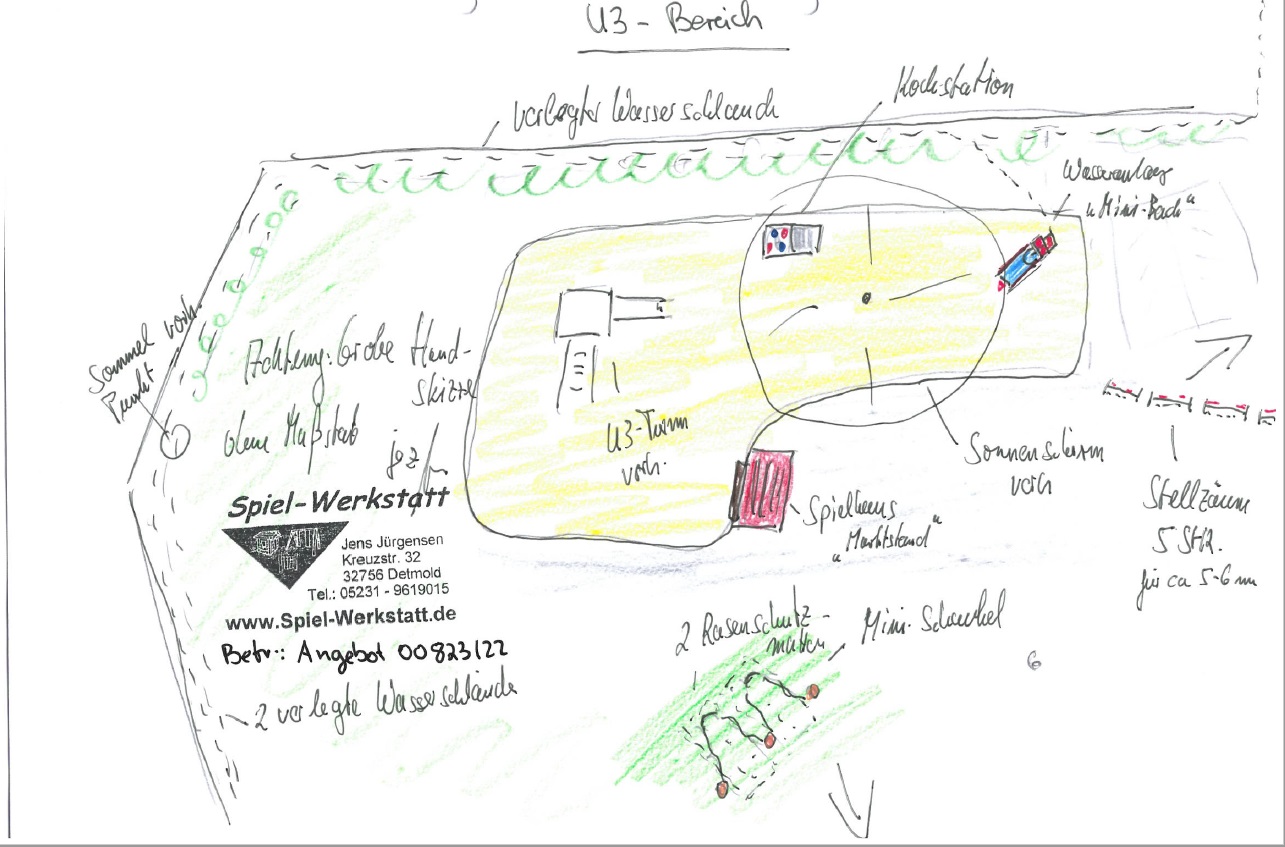 U3 - Bereich
verlegter Wasserschlauch
Kochstation
Wasseranlage
"Mini-Bach"
Sammel vorh.
Punkt
Achtung: Grobe Hand-
skizze
ohne Maßstab
gez
U3-Turm
vorh.
Sonnenschirm
vorh
Stellzäune
5 Stk.
für ca 5-6 m
Spielhaus
"Marktstand"
Spiel-Werkstatt
Jens Jürgensen
Kreuzstr. 32
32756 Detmold
Tel.: 05231 - 9619015
www.Spiel-Werkstatt.de
Betr.: Angebot 00823/22
2 verlegte Wasserschläuche
2 Rasenschutz-
matten
Mini-Schaukel
6